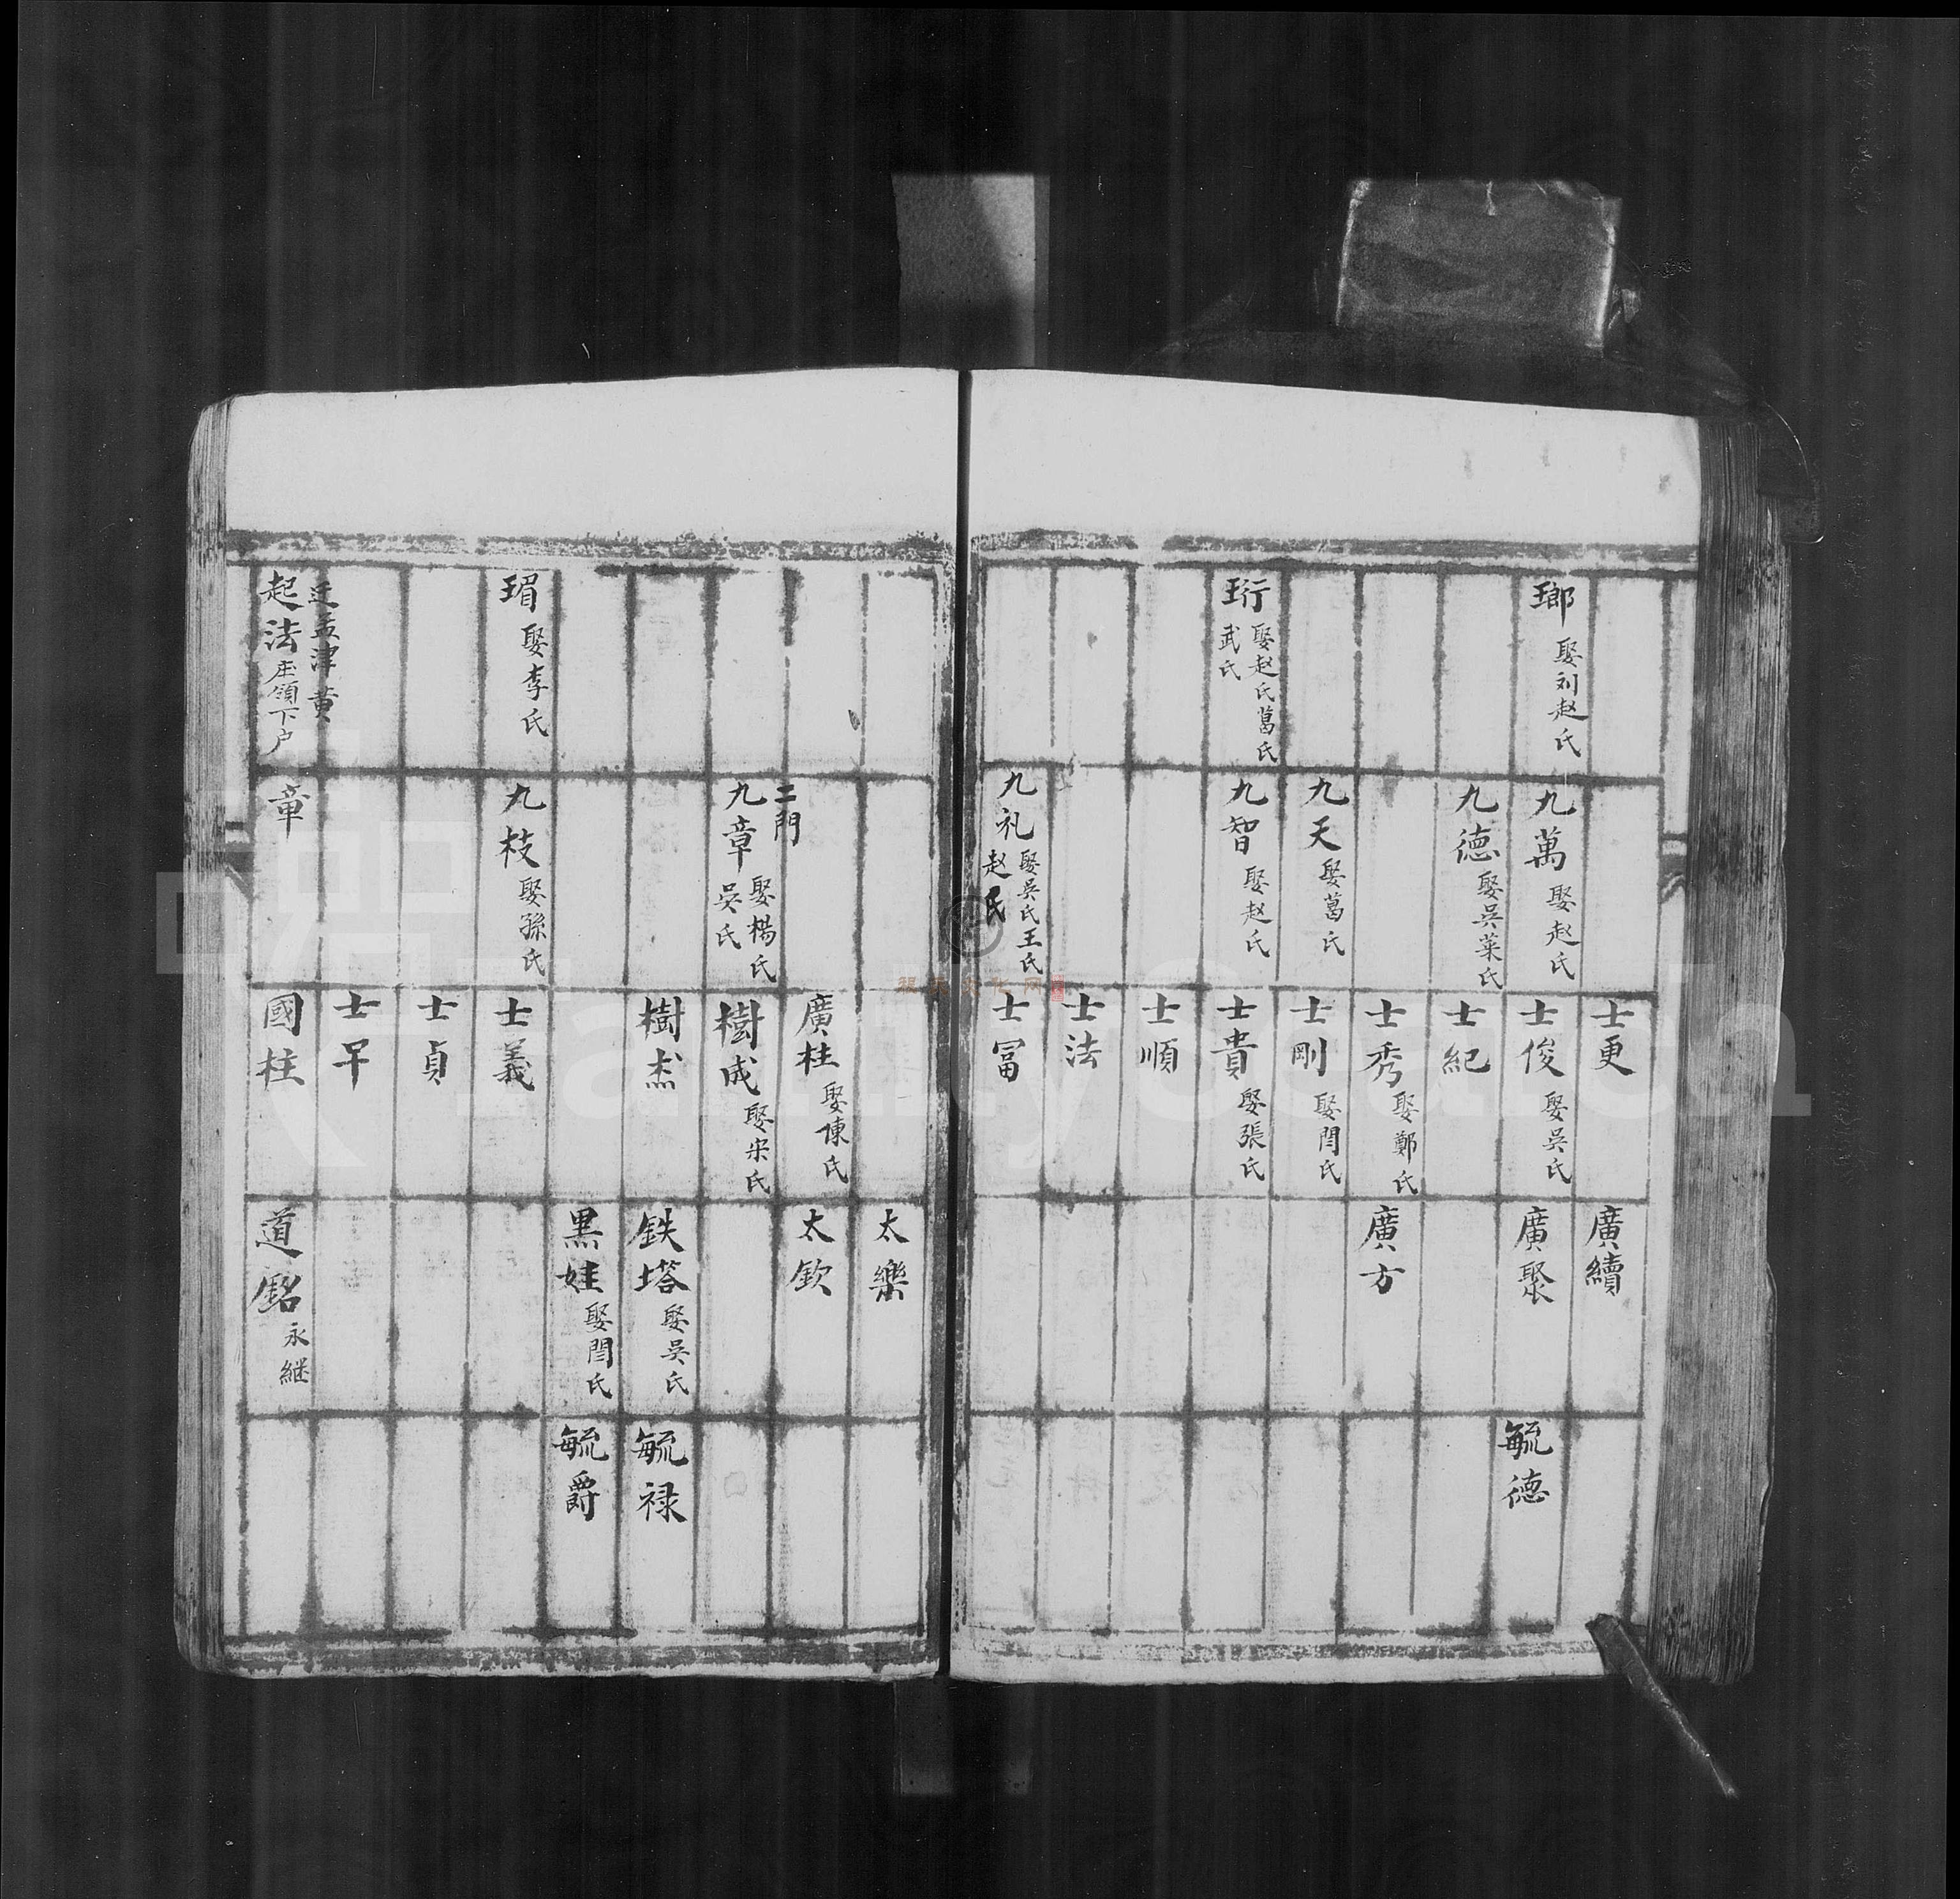 瑯 娶刘赵氏
珩 娶赵氏葛氏
武氏
九萬 娶赵氏
九德 娶吳葉氏
九天 娶葛氏
九智 娶赵氏
九礼 娶吳氏王氏
赵氏
士更
士俊 娶吳氏
士紀
士秀 娶鄭氏
士剛 娶閆氏
士貴 娶張氏
士順
士法
士冨
廣續
廣聚
廣方
毓德
瑁 娶李氏
迁孟津黄
起法 庄領下户
二門
九章 娶楊氏
吳氏
九枝 娶孫氏
章
廣柱 娶陳氏
樹成 娶宋氏
樹杰
士義
士貞
士早
國柱
太樂
太欽
铁塔 娶吳氏
黑娃 娶閆氏
道銘 永継
毓禄
毓爵
FamilySearch